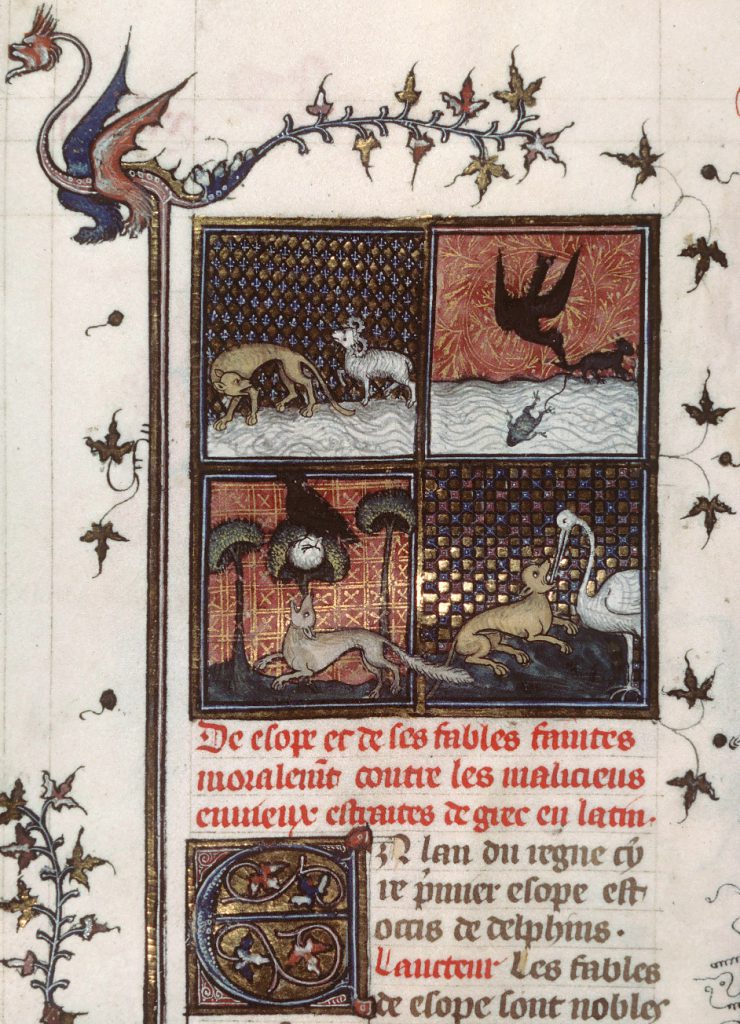 De esope et de ses fables faintes
moralem̃t contre les malicieus
enuieux estraites de grec en latin.
En lan du regne cy
re p̃mier esope est
occis de delphins.
Laucteur Les fables
de esope sont nobles